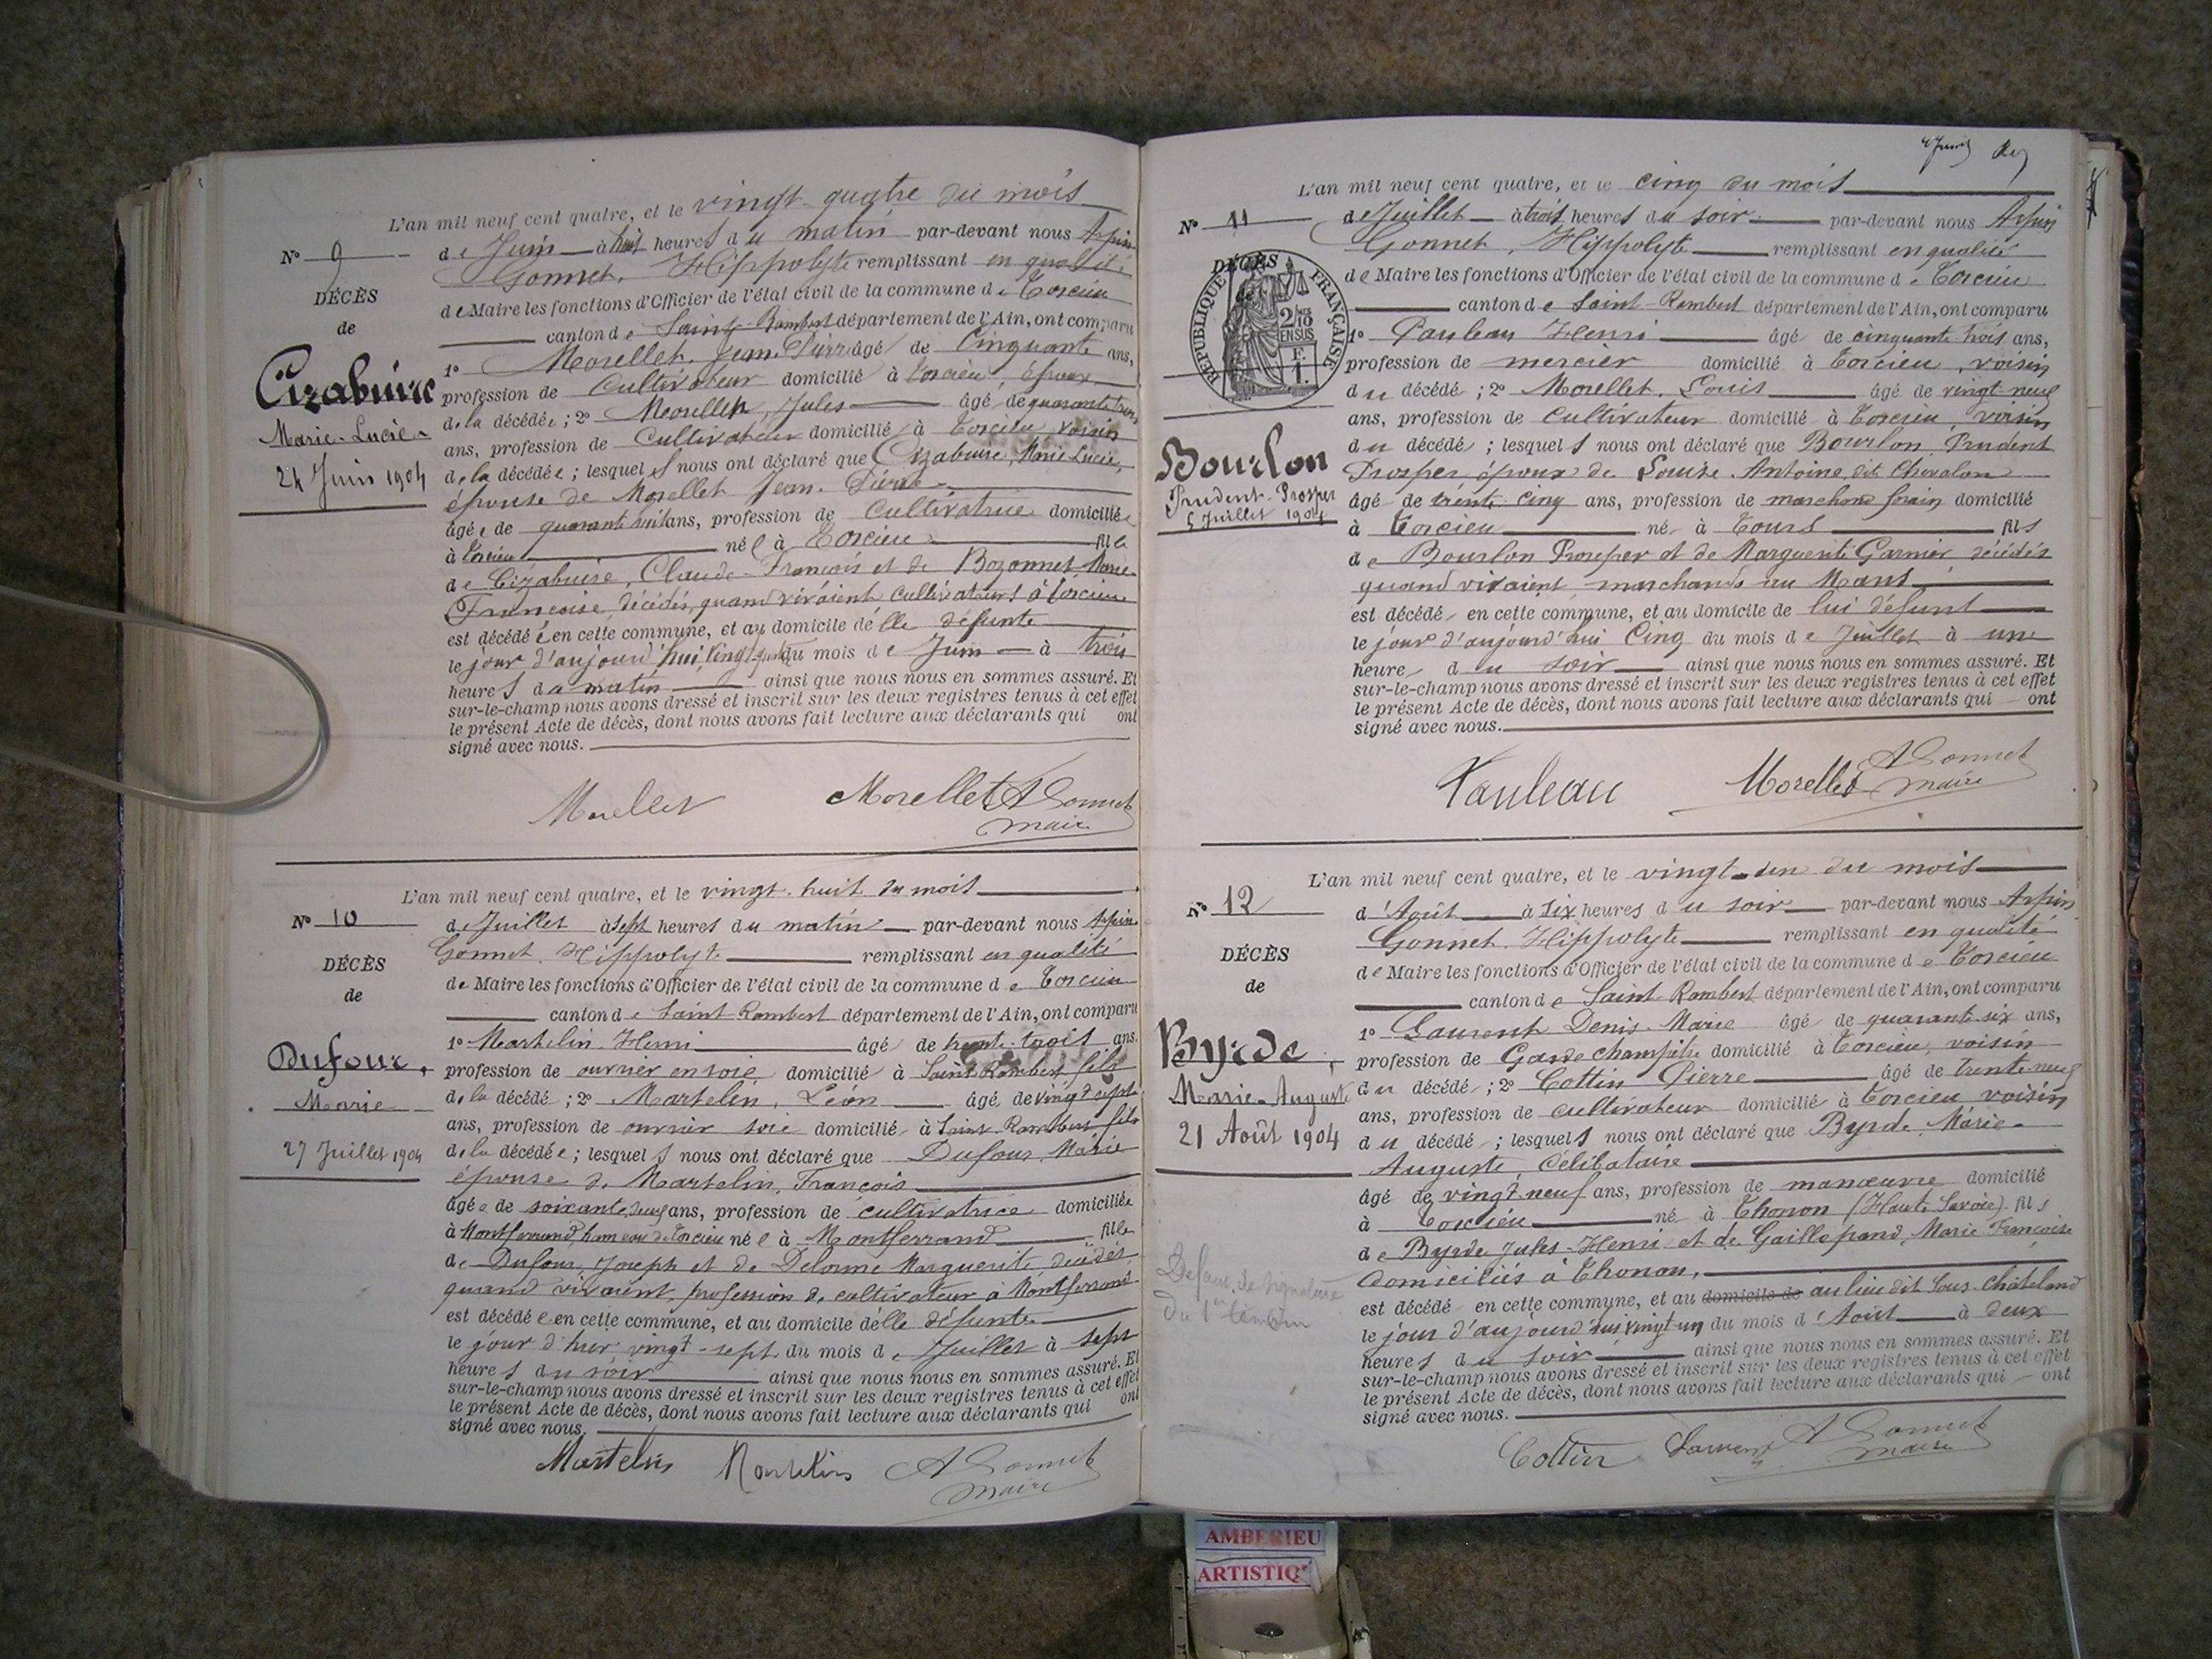 L'an mil neuf cent quatre, et le vingt-quatre du mois
N° 9
de Juin à huit heures du matin par-devant nous Arpin
Gonnet, Hippolyte remplissant en qualité
DÉCÈS
de Maire les fonctions d'Officier de l'état civil de la commune de Torcieu
de
canton de Saint-Rambert département de l'Ain, ont comparu
Cizabuire
Marie-Lucie
24 Juin 1904
1° Morellet, Jean-Pierre âgé de Cinquante ans,
profession de Cultivateur domicilié à Torcieu, époux
de la décédée ; 2° Morellet, Jules âgé de quarante trois
ans, profession de Cultivateur domicilié à Torcieu voisin
de la décédée ; lesquels nous ont déclaré que Cizabuire, Marie Lucie,
épouse de Morellet Jean-Pierre
âgée de quarante huit ans, profession de Cultivatrice domiciliée
à Torcieu née à Torcieu fille
de Cizabuire, Claude-François et de Bozonnet Marie
Françoise, décédés, quand vivaient cultivateurs à Torcieu
est décédée en cette commune, et au domicile d'elle défunte
le jour d'aujourd'hui, vingt-quatre du mois de Juin à trois
heures du matin ainsi que nous nous en sommes assuré. Et
sur-le-champ nous avons dressé et inscrit sur les deux registres tenus à cet effet
le présent Acte de décès, dont nous avons fait lecture aux déclarants qui ont
signé avec nous.
Morellet Morellet A Gonnet
maire
L'an mil neuf cent quatre, et le vingt-huit du mois
N° 10
de Juillet à sept heures du matin par-devant nous Arpin
Gonnet, Hippolyte remplissant en qualité
DÉCÈS
de Maire les fonctions d'Officier de l'état civil de la commune de Torcieu
de
canton de Saint-Rambert département de l'Ain, ont comparu
Dufour,
Marie
27 Juillet 1904
1° Martelin Henri âgé de trente-trois ans.
profession de ouvrier en soie domicilié à Saint-Rambert, fils
de la décédé ; 2° Martelin, Léon âgé de vingt sept
ans, profession de ouvrier soie domicilié à Saint-Rambert fils
de la décédée ; lesquels nous ont déclaré que Dufour, Marie
épouse de Martelin, François
âgée de soixante neuf ans, profession de cultivatrice domiciliée
à Montferrand, hameau de Torcieu née à Montferrand fille
de Dufour, Joseph et de Delorme Marguerite décédés
quand vivaient, profession de cultivateur à Montferrand
est décédée en cette commune, et au domicile d'elle défunte
le jour d'hier vingt-sept du mois de Juillet à sept
heures du soir ainsi que nous nous en sommes assuré. Et
sur-le-champ nous avons dressé et inscrit sur les deux registres tenus à cet effet
le présent Acte de décès, dont nous avons fait lecture aux déclarants qui ont
signé avec nous.
Martelin Martelin A Gonnet
maire
L'an mil neuf cent quatre, et le cinq du mois
N° 11
de Juillet à trois heures du soir par-devant nous Arpin
Gonnet, Hippolyte remplissant en qualité
DÉCÈS
de
RÉPUBLIQUE FRANÇAISE
2/10 EN SUS
F. 1.
de Maire les fonctions d'Officier de l'état civil de la commune de Torcieu
canton de Saint-Rambert département de l'Ain, ont comparu
Bourlon
Prudent-Prosper
5 Juillet 1904
1° Pauleau Henri âgé de cinquante trois ans,
profession de mercier domicilié à Torcieu, voisin
du décédé ; 2° Morellet, Louis âgé de vingt neuf
ans, profession de Cultivateur domicilié à Torcieu, voisin
du décédé ; lesquels nous ont déclaré que Bourlon, Prudent
Prosper, époux de Louise Antoine, dit Chevalon
âgé de trente-cinq ans, profession de marchand forain domicilié
à Torcieu né à Tours fils
de Bourlon Prosper et de Marguerite Garnier décédés
quand vivaient marchands au Mans
est décédé en cette commune, et au domicile de lui défunt
le jour d'aujourd'hui Cinq du mois de Juillet à une
heure du soir ainsi que nous nous en sommes assuré. Et
sur-le-champ nous avons dressé et inscrit sur les deux registres tenus à cet effet
le présent Acte de décès, dont nous avons fait lecture aux déclarants qui ont
signé avec nous.
Pauleau Morellet A Gonnet
maire
L'an mil neuf cent quatre, et le vingt-un du mois
N° 12
d'Août à six heures du soir par-devant nous Arpin
Gonnet, Hippolyte remplissant en qualité
DÉCÈS
de Maire les fonctions d'Officier de l'état civil de la commune de Torcieu
de
canton de Saint-Rambert département de l'Ain, ont comparu
Byrde,
Marie-Auguste
21 Août 1904
1° Laurent Denis-Marie âgé de quarante-six ans,
profession de Garde champêtre domicilié à Torcieu, voisin
du décédé ; 2° Cottin Pierre âgé de trente-neuf
ans, profession de cultivateur domicilié à Torcieu voisin
du décédé ; lesquels nous ont déclaré que Byrde, Marie-
Auguste, Célibataire
âgé de vingt-neuf ans, profession de manœuvre domicilié
à Torcieu né à Thonon (Haute Savoie) fils
de Byrde Jules-Henri et de Gaillepand, Marie Françoise
domiciliés à Thonon,
est décédé en cette commune, et au domicile de au lieu dit Sous-Chateland
le jour d'aujourd'hui vingt un du mois d'Août à deux
heures du soir ainsi que nous nous en sommes assuré. Et
sur-le-champ nous avons dressé et inscrit sur les deux registres tenus à cet effet
le présent Acte de décès, dont nous avons fait lecture aux déclarants qui ont
signé avec nous.
Défaut de signature
du 1er témoin
Cottin Laurent A Gonnet
maire
AMBERIEU
ARTISTIQ